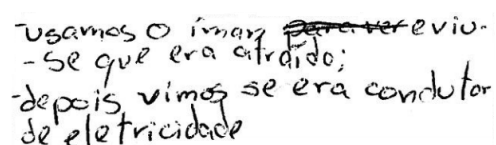 -usamos o íman e viu-
-se que era atraído;
-depois vimos se era condutor
de eletricidade